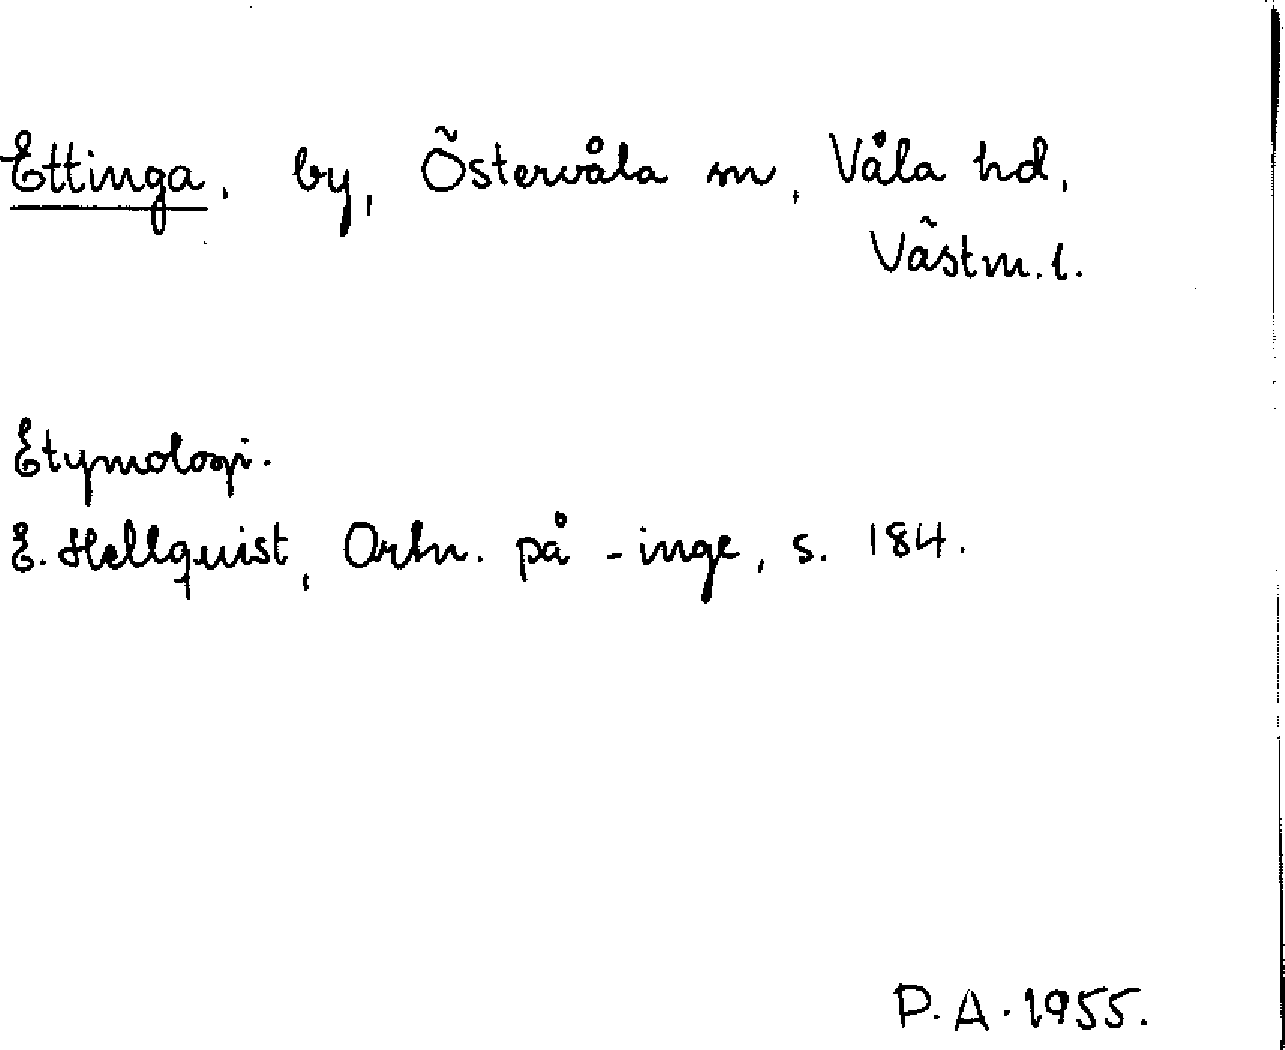 Ettinga, by, Östervåla sn, Våla hd,
Västm. l.
Etymologi.
E. Hellquist, Ortn. på -inge, s. 184.
P.A. 1955.